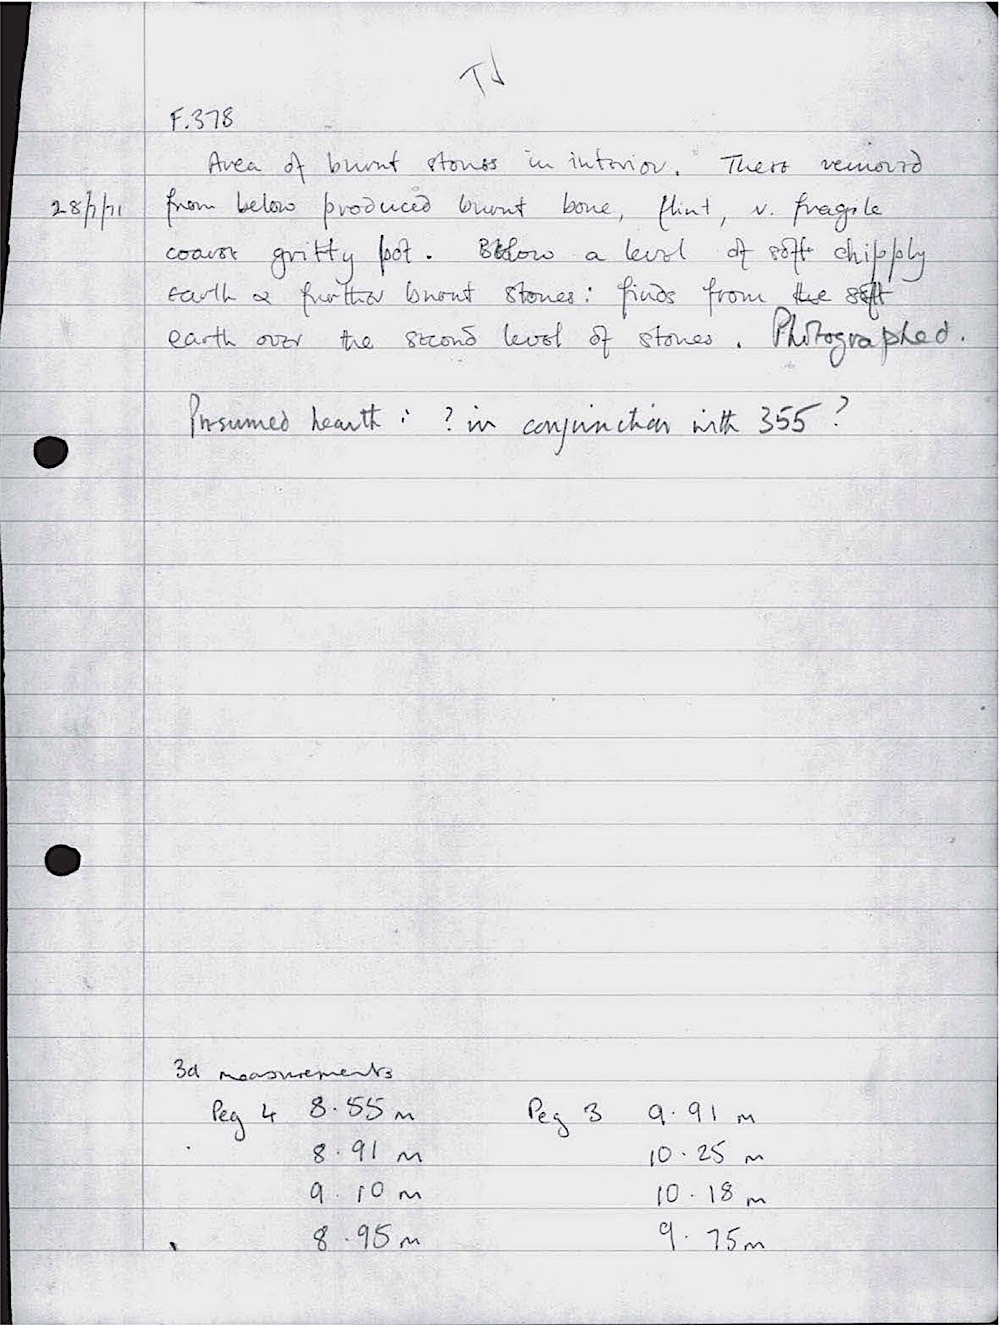 TJ
F.378
Area of burnt stones in interior. These removed
28/7/71 from below produced burnt bone, flint, v. fragile
coarse gritty pot. Below a level of soft chipply
earth & further burnt stones: finds from the soft
earth over the second level of stones. Photographed.
Presumed hearth : ? in conjunction with 355?
3d measurements
Peg 4 8.55 m Peg 3 9.91 m
8.91 m 10.25 m
9.10 m 10.18 m
8.95 m 9.75 m